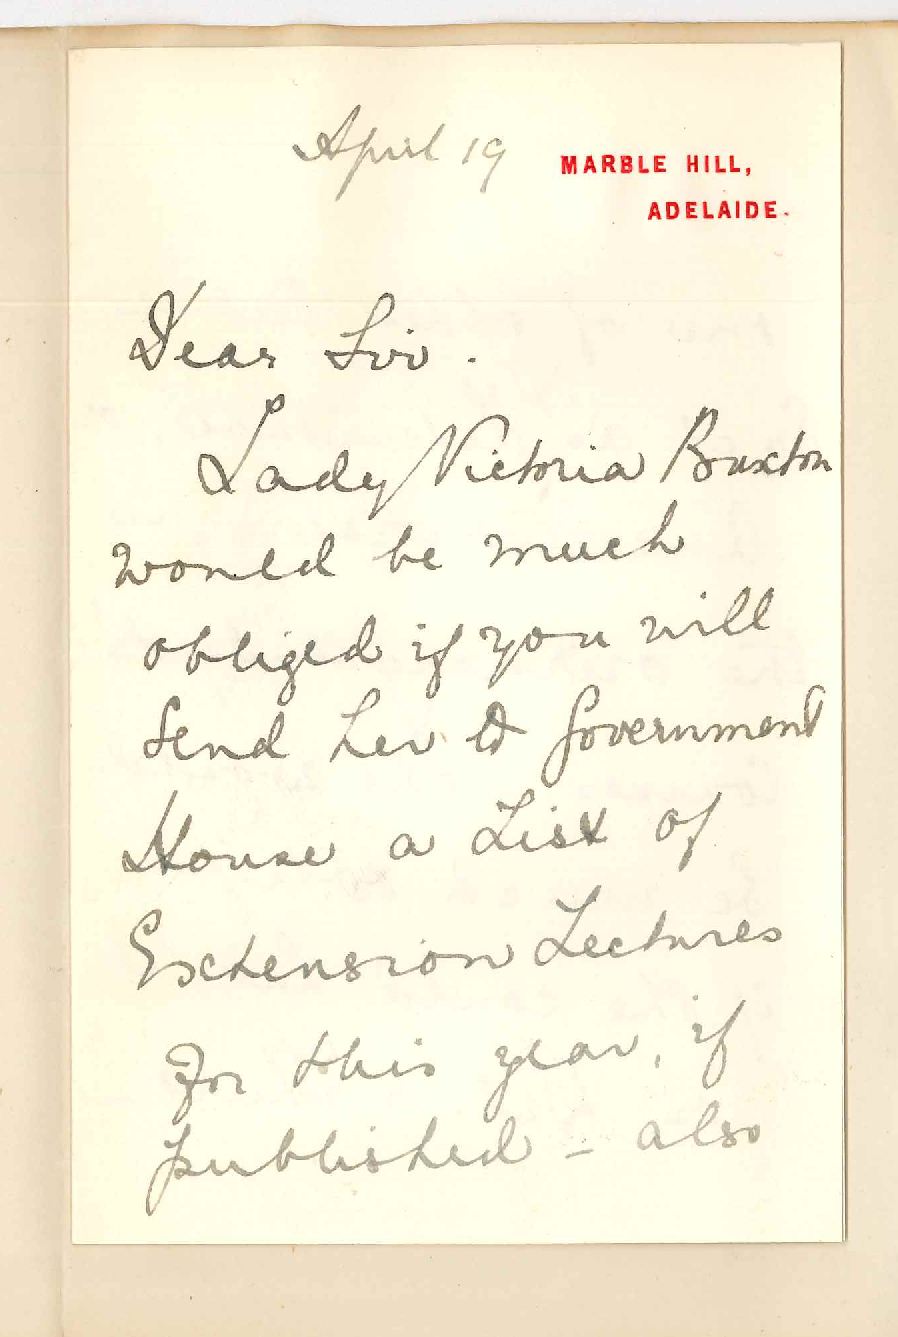 April 19
MARBLE HILL,
ADELAIDE.
Dear Sir.
Lady Victoria Buxton
would be much
obliged if you will
Send her to Government
House a List of
Extension Lectures
for this year, if
published - also